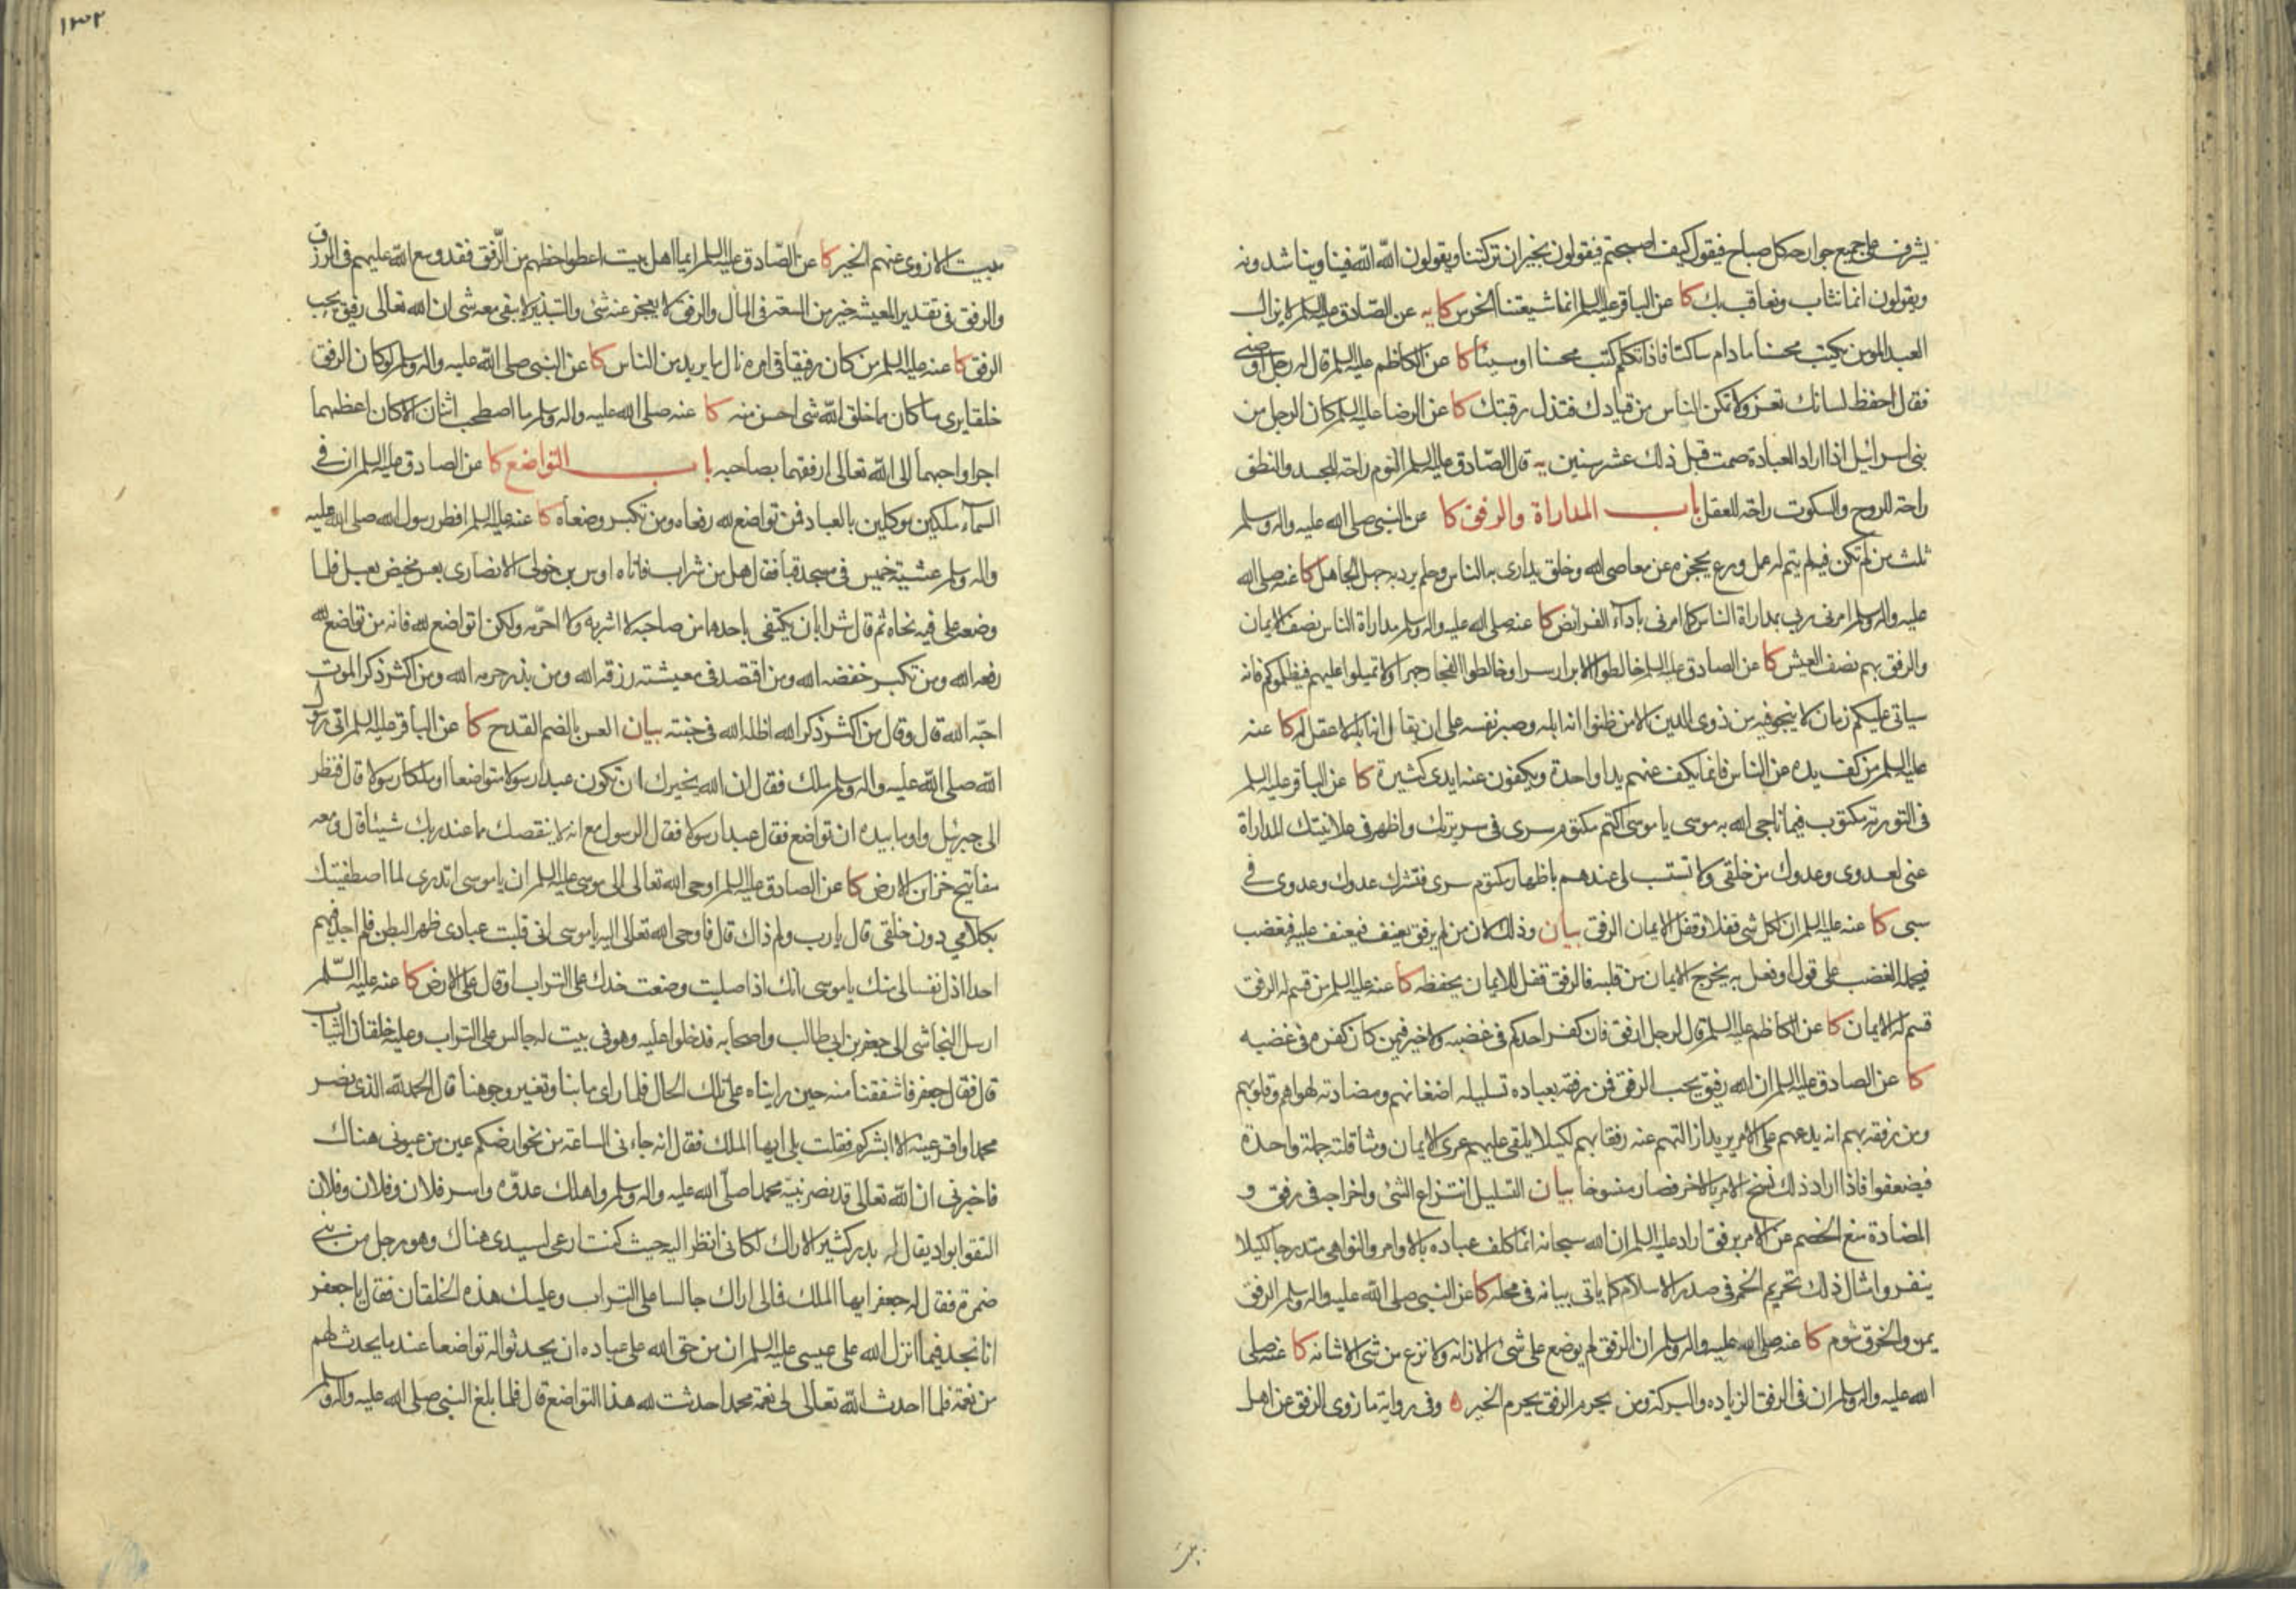 يشرف على جميع جوارحه كل صباح فيقول كيف اصبحتم فيقولون بخير ان تركتنا ويقولون الله الله فينا ويناشدونه
ويقولون انما نثاب ونعاقب بك كا عن الباقر عليه السلم انما شيعتنا الخرس كا يه عن الصادق عليه السلم لا يزال
العبد المومن يكتب محسنا مادام ساكتا فاذا تكلم كتب محسنا او مسيئا كا عن الكاظم عليه السلم قال له رجل اوصني
فقال احفظ لسانك تعز ولا تمكن الناس من قيادك فتذل رقبتك كا عن الرضا عليه السلم كان الرجل من
بنى اسرائيل اذا اراد العبادة صمت قبل ذلك عشر سنين يه قال الصادق عليه السلم النوم راحة للجسد والنطق
راحة للروح والسكوت راحة للعقل باب المداراة والرفق كا عن النبي صلى الله عليه واله وسلم
ثلث من لم تكن فيه لم يتم له عمل ورع يحجزه عن معاصى الله وخلق يدارى به الناس وحلم يرد به جهل الجاهل كا عنه صلى الله
عليه واله وسلم امرنى ربى بمداراة الناس كما امرنى باداء الفرائض كا عنه صلى الله عليه واله وسلم مداراة الناس نصف الايمان
والرفق بهم نصف العيش كا عن الصادق عليه السلم خالطوا الابرار سرا وخالطوا الفجار جهرا ولا تميلوا عليهم فيظلموكم فانه
سياتى عليكم زمان لا ينجو فيه من ذوى الدين الا من ظنوا انه ابله وصبر نفسه على ان يقال انه ابله لا عقل له كا عنه
عليه السلم من كف يده عن الناس فانما يكف عنهم يدا واحدة ويكفون عنه ايدى كثيرة كا عن الباقر عليه السلم
فى التورية مكتوب فيما ناجى الله به موسى يا موسى اكتم مكتوم سرى فى سريرتك واظهر فى علانيتك المداراة
عنى لعدوى وعدوك من خلقى ولا تستسب لى عندهم باظهار مكتوم سرى فتشرك عدوك وعدوى فى
سبى كا عنه عليه السلم ان لكل شى قفلا وقفل الايمان الرفق بيان وذلك لان من لم يرفق يعنف فيعنف عليه فيغضب
فيحمله الغضب على قول او فعل به يخرج الايمان من قلبه فالرفق قفل للايمان يحفظه كا عنه عليه السلم من قسم له الرفق
قسم له الايمان كا عن الكاظم عليه السلم قال لرجل ارفق فان كفر احدكم فى غضبه ولا خير فيمن كان كفره فى غضبه
كا عن الصادق عليه السلم ان الله رفيق يحب الرفق فمن رفقه بعباده تسليله اضغانهم ومضادته لهواهم وقلوبهم
ومن رفقه بهم انه يدعهم على الامر يريد ازالتهم عنه رفقا بهم لكيلا يلقى عليهم عرى الايمان ومثاقلته جملة واحدة
فيضعفوا فاذا اراد ذلك نسخ الامر بالاخر فصار منسوخا بيان التسليل انتزاع الشئ واخراجه فى رفق و
المضادة منع الخصم عن الامر برفق اراد عليه السلم ان الله سبحانه انما كلف عباده بالاوامر والنواهى متدرجا لكيلا
ينفروا مثال ذلك تحريم الخمر فى صدر الاسلام كما ياتى بيانه فى محله كا عن النبي صلى الله عليه واله وسلم الرفق
يمن والخرق شوم كا عنه صلى الله عليه واله وسلم ان الرفق لم يوضع على شئ الا زانه ولا نزع من شى الا شانه كا عنه صلى
الله عليه واله وسلم ان فى الرفق الزيادة والبركة ومن يحرم الرفق يحرم الخير ه وفى رواية ما زوى الرفق عن اهل
بيت
١٣٢
بيت الا زوى عنهم الخير كا عن الصادق عليه السلم ايما اهل بيت اعطوا حظهم من الرفق فقد وسع الله عليهم فى الرزق
والرفق فى تقدير المعيشة خير من السعة فى المال والرفق لا يعجز عنه شئ والتبذير لا يبقى معه شى ان الله تعالى رفيق يحب
الرفق كا عنه عليه السلم من كان رفيقا فى امره نال ما يريد من الناس كا عن النبي صلى الله عليه واله وسلم لو كان الرفق
خلقا يرى ما كان مما خلق الله شى احسن منه كا عنه صلى الله عليه واله وسلم ما اصطحب اثنان الا كان اعظمهما
اجرا واحبهما الى الله تعالى ارفقهما بصاحبه باب التواضع كا عن الصادق عليه السلم ان فى
السماء ملكين موكلين بالعباد فمن تواضع لله رفعاه ومن تكبر وضعاه كا عنه عليه السلم افطر رسول الله صلى الله عليه
واله وسلم عشية خميس فى مسجد قبا فقال هل من شراب فاتاه اوس بن خولى الانصارى بعس مخيض بعسل فلما
وضعه على فيه نحاه ثم قال شرابان يكتفى باحدهما من صاحبه لا اشربه ولا احرمه ولكن اتواضع لله فانه من تواضع لله
رفعه الله ومن تكبر خفضه الله ومن اقتصد فى معيشته رزقه الله ومن بذر حرمه الله ومن اكثر ذكر الموت
احبه الله قال وقال من اكثر ذكر الله اظله الله فى جنته بيان العس بالضم القدح كا عن الباقر عليه السلم اتى رسول
الله صلى الله عليه واله وسلم ملك فقال ان الله يخيرك ان تكون عبدا رسولا متواضعا او ملكا رسولا قال فنظر
الى جبرئيل واوما بيده ان تواضع فقال عبدا رسولا فقال الرسول مع انه لا ينقصك مما عند ربك شيئا قال ومعه
مفاتيح خزائن الارض كا عن الصادق عليه السلم اوحى الله تعالى الى موسى عليه السلم ان يا موسى اتدرى لما اصطفيتك
بكلامي دون خلقى قال يا رب ولم ذاك قال فاوحى الله تعالى اليه يا موسى انى قلبت عبادى ظهرا لبطن فلم اجد فيهم
احدا اذل نفسا لى منك يا موسى انك اذا صليت وضعت خدك على التراب او قال على الارض كا عنه عليه السلم
ارسل النجاشى الى جعفر بن ابى طالب واصحابه فدخلوا عليه وهو فى بيت له جالس على التراب وعليه خلقان الثياب
قال فقال جعفر فاشفقنا منه حين رايناه على تلك الحال فلما راى ما بنا وتغير وجوهنا قال الحمد لله الذى نصر
محمدا واقر عينه الا ابشركم فقلت بلى ايها الملك فقال انه جاءنى الساعة من نحو ارضكم عين من عيونى هناك
فاخبرنى ان الله تعالى قد نصر نبيه محمدا صلى الله عليه واله وسلم واهلك عدوه واسر فلان وفلان وفلان
التقوا بواد يقال له بدر كثير الاراك لكانى انظر اليه حيث كنت ارعى لسيدى هناك وهو رجل من بنى
ضمرة فقال له جعفر ايها الملك فمالى اراك جالسا على التراب وعليك هذه الخلقان فقال يا جعفر
انا نجد فيما انزل الله على عيسى عليه السلم ان من حق الله على عباده ان يحدثوا له تواضعا عند ما يحدث لهم
من نعمة فلما احدث الله تعالى لى نعمة محمد احدثت لله هذا التواضع قال فلما بلغ النبي صلى الله عليه واله وسلم